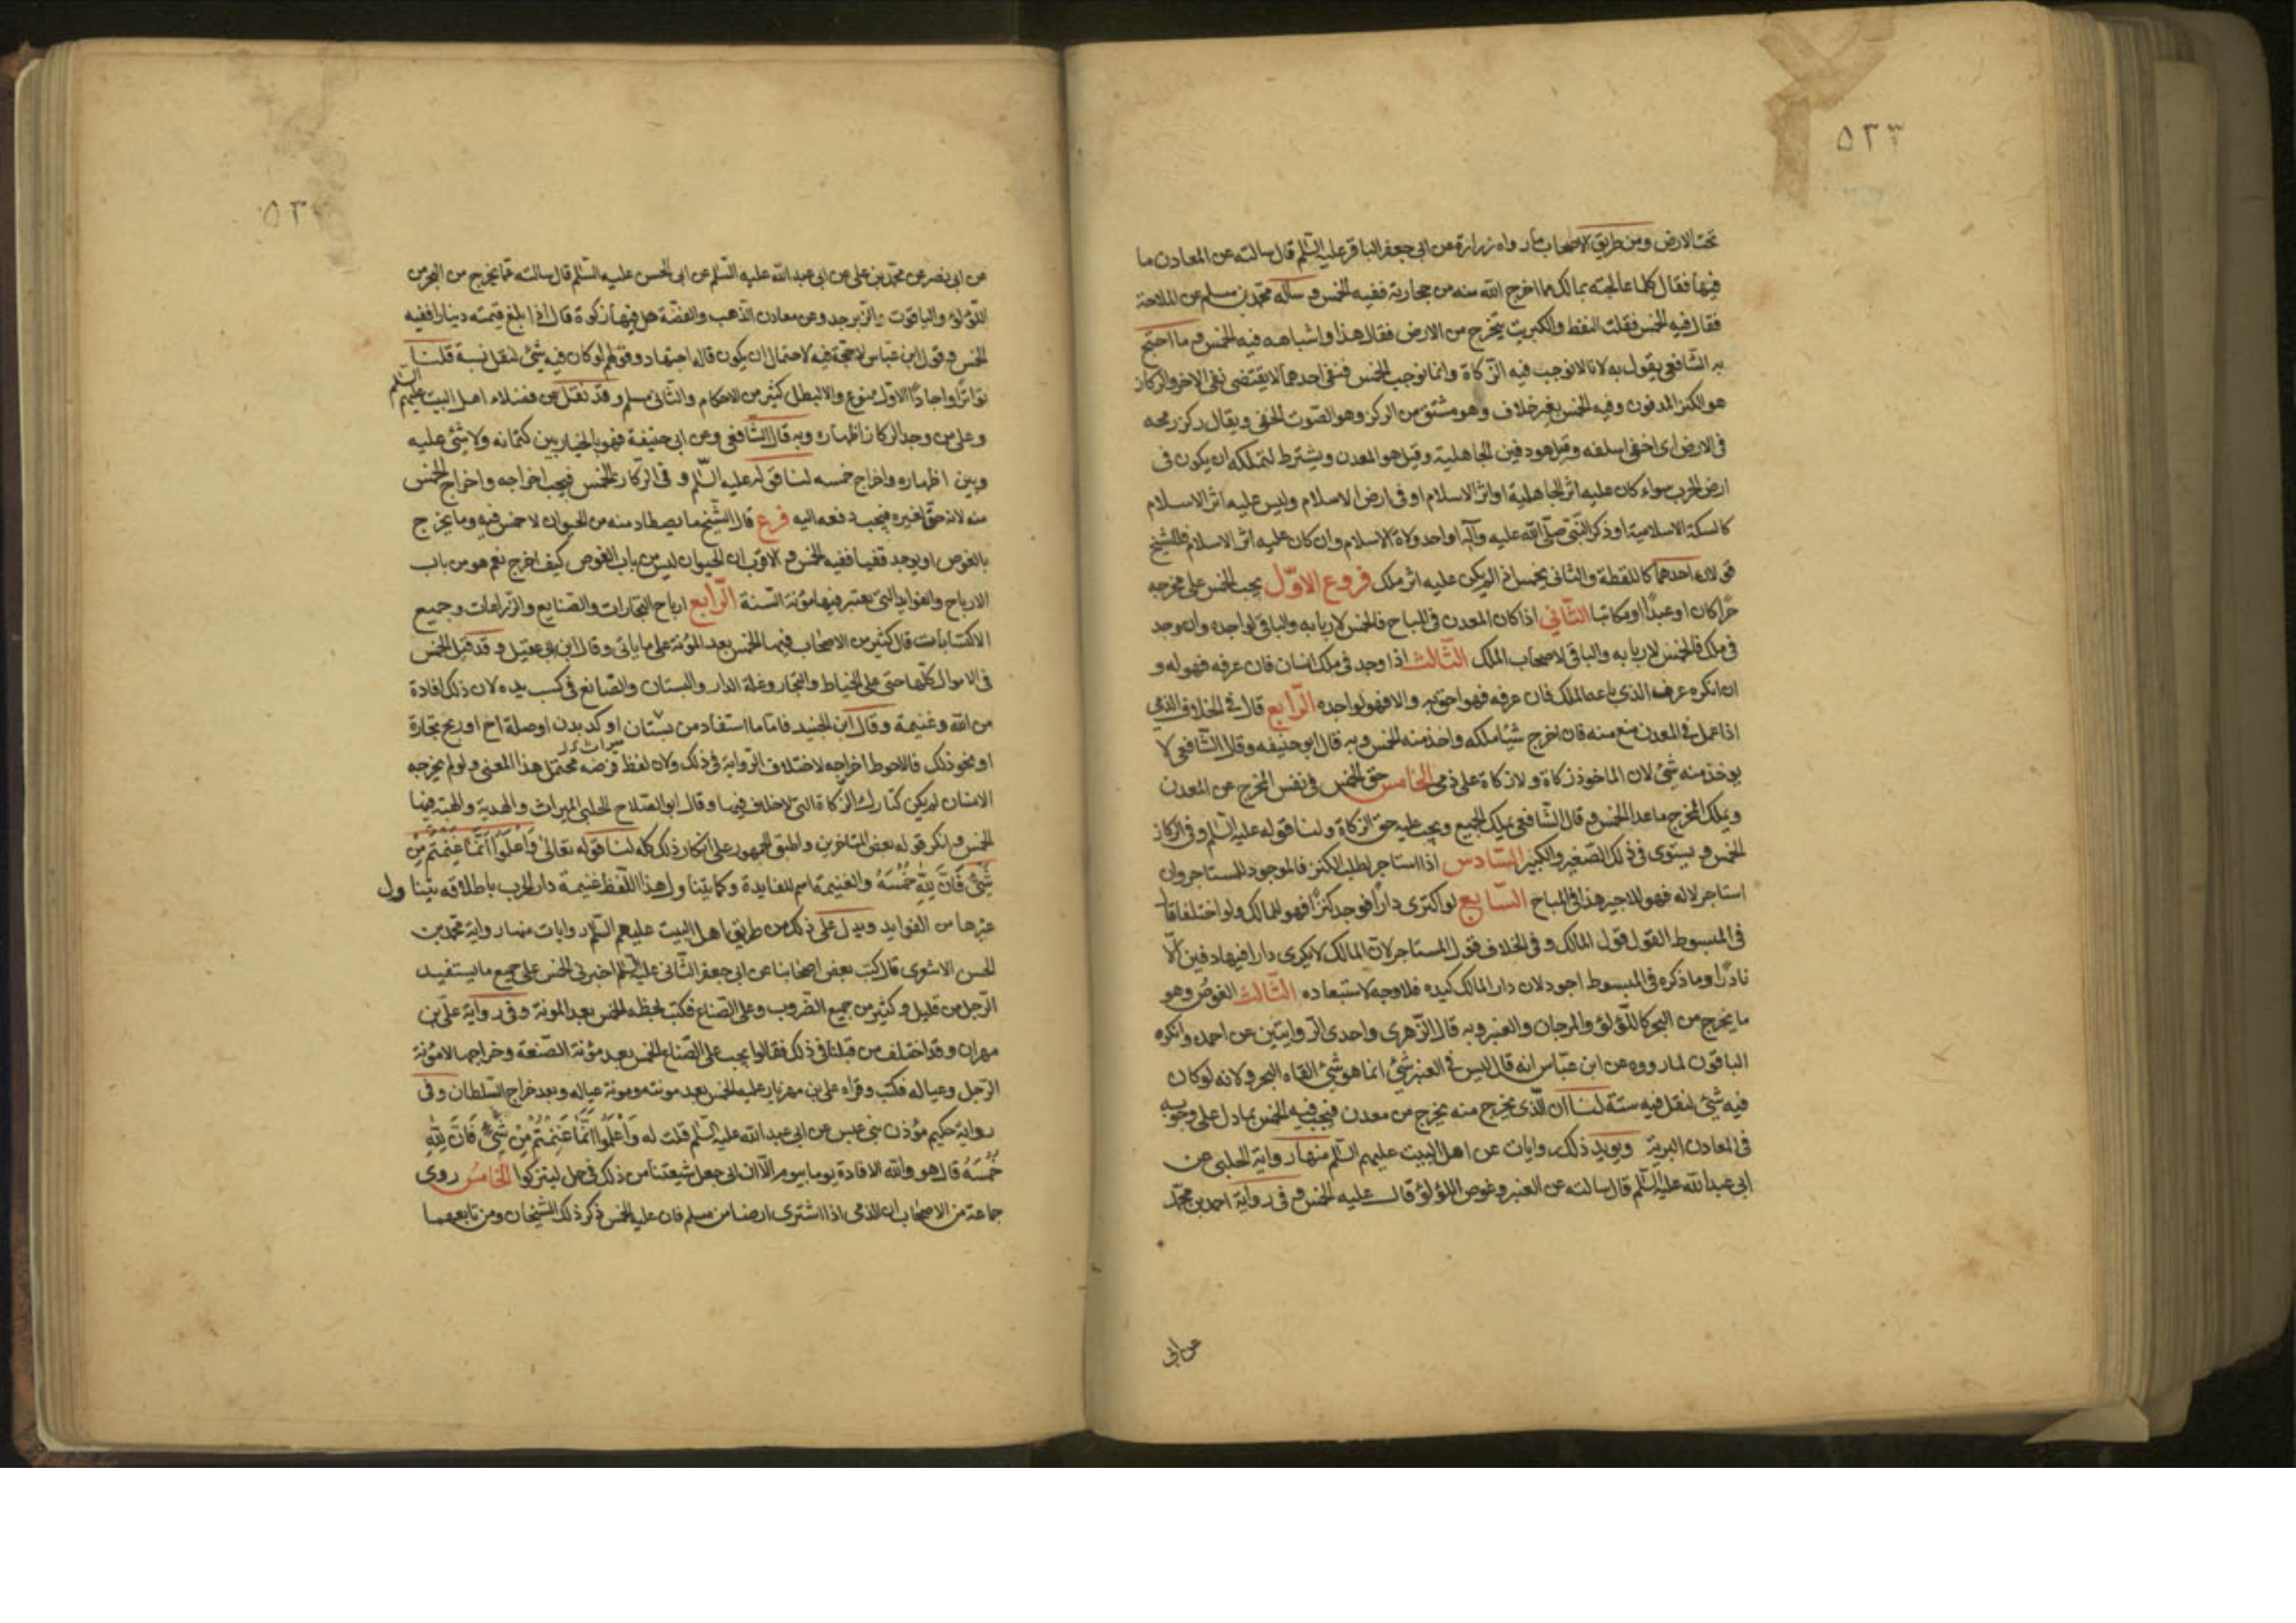 ٥٢٣
تحت الارض ومن طريق الاصحاب ما رواه زرارة عن ابى جعفر الباقر عليه السلم قال سالته عن المعادن ما
فيها فقال كلما عالجته بمالك مما اخرج الله منه من حجارية ففيه الخمس و ساله محمد بن مسلم عن الملاحة
فقال فيه الخمس فقلت النفط والكبريت يخرج من الارض فقال هذا واشباهه فيه الخمس و ما احتج
به الشافعى يقول به لانا لا نوجب فيه الزكاة وانما نوجب الخمس فنفى احدهما لا يقتضى نفى الاخر والركاز
هو الكنز المدفون وفيه الخمس بغير خلاف وهو مشتق من الركز وهو الصوت الخفى ويقال ركز رمحه
فى الارض اى اخفى اسلفه وقيل هو دفين الجاهلية وقيل هو المعدن ويشترط لتملكه ان يكون فى
ارض الحرب سواء كان عليه اثر الجاهلية او اثر الاسلام او فى ارض الاسلام وليس عليه اثر الاسلام
كالسكة الاسلامية او ذكر النبى صلى الله عليه وآله او احد ولاة الاسلام وان كان عليه اثر الاسلام فللشيخ
قولان احدهما كاللقطة والثانى يخمس اذا لم يكن عليه اثر ملك فروع الاوّل يجب الخمس على مخرجه
حرًا كان او عبدًا او مكاتبا الثّاني اذا كان المعدن فى المباح فالخمس لاربابه والباقى لواجده وان وجد
فى ملك فالخمس لاربابه والباقى لاصحاب الملك الثّالث اذا وجد فى ملك انسان فان عرفه فهو له و
ان انكره عرفه الذى باعه الملك فان عرفه فهو احق به والا فهو لواجده الرّابع قال فى الخلاف الذمى
اذا عمل فى المعدن منع منه فان اخرج شيئا ملكه واخذ منه الخمس وبه قال ابو حنيفه وقال الشافعى لا
يوخذ منه شئ لان الماخوذ زكاة ولا زكاة على ذمى الخامس حق الخمس فى نفس المخرج عن المعدن
ويملك المخرج ما عدا الخمس و قال الشافعى يملك الجميع ويجب عليه حق الزكاة ولنا قوله عليه السلم وفى الركاز
الخمس و يستوى فى ذلك الصغير والكبير السّادس اذا استاجر لطلب الكنز فالموجود للمستاجر وان
استاجر لا له فهو للاجير هذا فى المباح السّابع لو اكترى دارًا فوجد كنزًا فهو للمالك ولو اختلفا قال
فى المبسوط القول قول المالك و فى الخلاف قول المستاجر لان المالك لا يكرى دارا فيها دفين الّا
نادرًا وما ذكره فى المبسوط اجود لان دار المالك كيده فلا وجه لاستبعاده الثّالث الغوص وهو
ما يخرج من البحر كاللؤلؤ والمرجان والعنبر وبه قال الزهرى واحدى الروايتين عن احمد وانكره
الباقون لما رووه عن ابن عبّاس انه قال ليس فى العنبر شئ انما هو شئ القاه البحر و لانه لو كان
فيه شئ لنقل فيه سنة لنا ان الّذى يخرج منه يخرج من معدن فيجب فيه الخمس بما دل على وجوبه
فى المعادن البرية ويويد ذلك روايات عن اهل البيت عليهم السلم منها رواية الحلبى عن
ابى عبد الله عليه السلم قال سالته عن العنبر وغوص اللؤلؤ قال عليه الخمس و فى رواية احمد بن محمّد
عن ابى
٥٢
عن ابى نصر عن محمد بن على عن ابى عبد الله عليه السلم عن ابى الحسن عليه السلم قال سالته عما يخرج من البحر من
اللؤلؤ والياقوت والزبرجد وعن معادن الذهب والفضة هل فيها زكوة قال اذا بلغ قيمته دينارا ففيه
الخمس و قول ابن عباس لا حجة فيه لاحتمال ان يكون قاله اجتهادا وقولهم لو كان فيه شئ لنقل نسبة قلنا
تواترًا واحادًا الاوّل ممنوع والا لبطل كثير من الاحكام والثانى مسلم وقد نقل عن فضلاء اهل البيت عليهم السلم
وعلى من وجد الركاز اظهاره وبه قال الشافعى وعن ابى حنيفة فهو بالخيار بين كتمانه ولا شئ عليه
وبين اظهاره واخراج خمسه لنا قوله عليه السلم و فى الركاز الخمس فيجب اخراجه واخراج الخمس
منه لانه حق لغيره فيجب دفعه اليه فرع قال الشيخ ما يصطاد منه من الحيوان لا خمس فيه وما يخرج
بالغوص او يوجد قفيا ففيه الخمس و الاقرب ان الحيوان ليس من باب الغوص كيف اخرج نعم هو من باب
الارباح والفوايد التى يعتبر فيها مؤنة السنة الرّابع ارباح التجارات والصنايع والزراعات وجميع
الاكتسابات قال كثير من الاصحاب فيها الخمس بعد المؤنة على ما ياتى وقال ابن ابى عقيل و قد قيل الخمس
فى الاموال كلها حتى على الخياط والنجار وغلة الدار والبستان والصّانع فى كسب يده لان ذلك افادة
من الله وغنيمة وقال ابن الجنيد فاما ما استفاد من بستان او كد بدن او صلة اخ او ربح تجارة
او نحو ذلك فالاحوط اخراجه لاختلاف الرواية فى ذلك ولان لفظ فرضه محتمل هذا المعنى ولو لم يخرجه
الانسان لم يكن كتارك الزكاة التى لا خلاف فيها وقال ابو الصلاح الحلبى الميراث والهدية والهبة فيها
الخمس و انكر قوله بعض المتاخرين واطبق الجمهور على انكار ذلك كله لنا قوله تعالى وَاعْلَمُوا اَنَّمَا غَنِمْتُمْ مِنْ
شَئٍ فَاَنَّ لِلّٰهِ خُمُسَهُ والغنيمة اسم للفايدة وكما يتناول هذا اللّفظ غنيمة دار الحرب باطلاقه يتناول
غيرها من الفوايد ويدل على ذلك من طريق اهل البيت عليهم السّلم روايات منها رواية محمد بن
الحسن الاشعرى قال كتب بعض اصحابنا عن ابى جعفر الثانى عليه السلم اخبرنى الخمس على جميع ما يستفيد
الرّجل من قليل و كثير من جميع الضروب وعلى الصناع فكتب بخطه الخمس بعد المونة وفى رواية على بن
مهران وقد اختلف من قبلنا فى ذلك فقالوا يجب على الصناع الخمس بعد مؤنة الصنعة وخراجها لا مؤنة
الرّجل وعياله فكتب وقراه على بن مهزيار عليه الخمس بعد مونته ومونة عياله وبعد خراج السّلطان وفى
رواية حكيم مؤذن بنى عبس عن ابى عبد الله عليه السلم قلت له وَاعْلَمُوا اَنَّمَا غَنِمْتُمْ مِنْ شَئٍ فَاَنَّ لِلّٰهِ
خُمُسَهُ قال هو والله الافادة يوما بيوم الّا ان ابى جعل شيعتنا من ذلك فى حل ليتزكوا الخامس روى
جماعة من الاصحاب ان الذمى اذا اشترى ارضا من مسلم فان عليه الخمس ذكر ذلك الشيخان ومن تابعهما